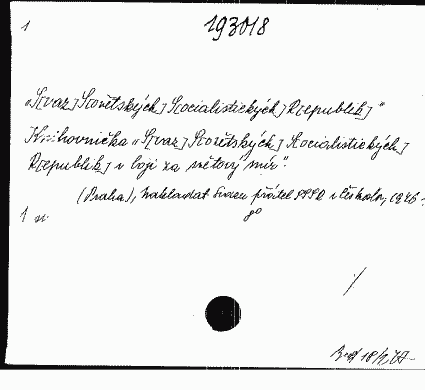 1 193018
„S[vaz] S[ovětských] S[ocialistických] R[epublik]"
Knihovnička „S[vaz] S[ovětských] S[ocialistických]
R[epublik] v boji za světový mír".
(Praha), Nakladat. Svazu přátel SSSR v Českoslov, 19
1 sv. 8°